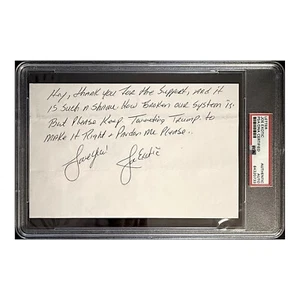 Hey, thank you for the support, and it
is such a shame. How Broken our System is.
But Please Keep Tweeting Trump. to
make it Right + Pardon Me Please.
Love you!
Joe Exotic
LETTER
JOE EXOTIC
AUTHENTIC
AUTO